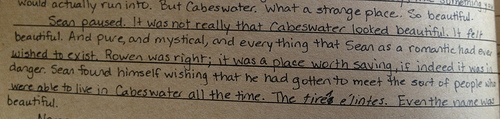 would actually run into. But Cabeswater. What a strange place. So beautiful.
Sean paused. It was not really that Cabeswater looked beautiful. It felt
beautiful. And pure, and mystical, and everything that Sean as a romantic had ever
wished to exist. Rowen was right; it was a place worth saving, if indeed it was in
danger. Sean found himself wishing that he had gotten to meet the sort of people who
were able to live in Cabeswater all the time. The tire's e'lintes. Even the name was
beautiful.